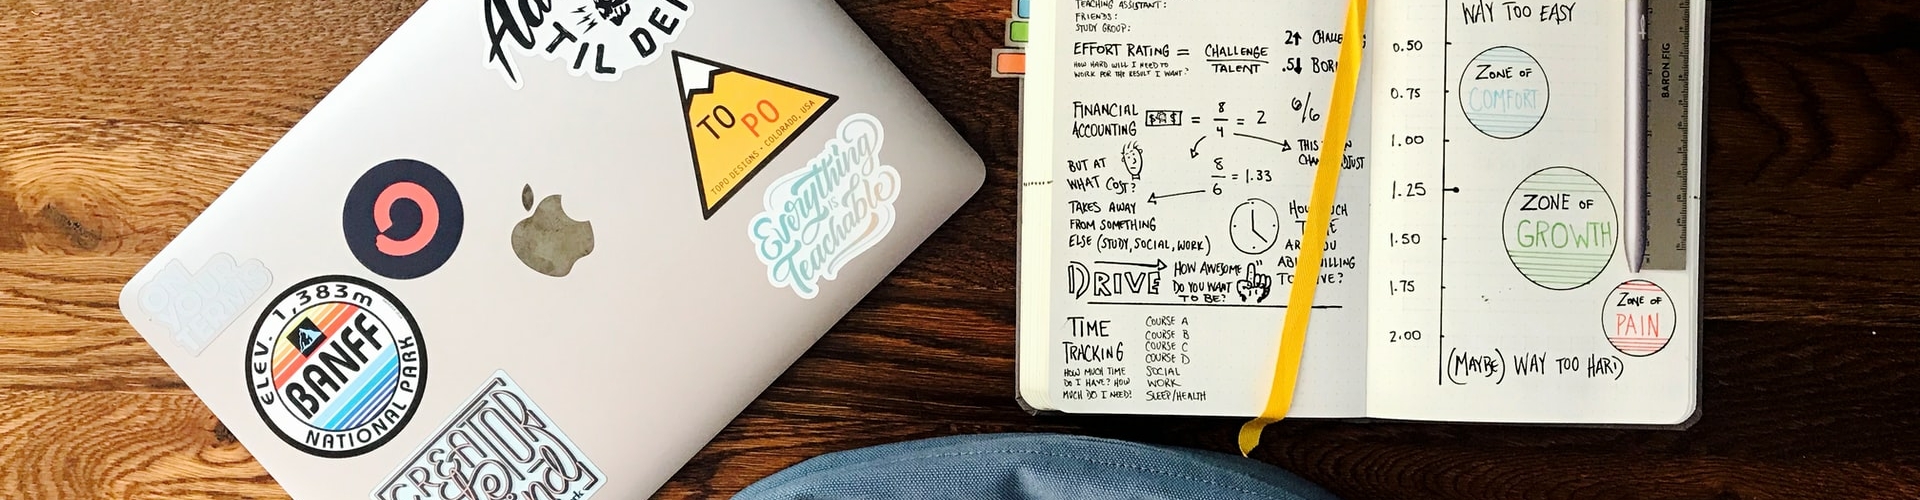 TIL DEA
TO PO
TOPO DESIGNS · COLORADO, USA
Everything
is
Teachable
ON
YOUR
TERMS
ELEV. 1,383m
BANFF
NATIONAL PARK
CREATOR
TEACHING ASSISTANT:
FRIENDS:
STUDY GROUP:
EFFORT RATING = CHALLENGE
TALENT
HOW HARD WILL I NEED TO
WORK FOR THE RESULT I WANT?
2↑
.5↓
FINANCIAL
ACCOUNTING
$ $ = 8/4 = 2
6/6
THIS
BUT AT
WHAT COST?
8/6 = 1.33
TAKES AWAY
FROM SOMETHING
ELSE (STUDY, SOCIAL, WORK)
DRIVE
HOW AWESOME
DO YOU WANT
TO BE?
TIME
TRACKING
HOW MUCH TIME
DO I HAVE? HOW
MUCH DO I NEED?
COURSE A
COURSE B
COURSE C
COURSE D
SOCIAL
WORK
SLEEP/HEALTH
WAY TOO EASY
0.50
0.75
1.00
1.25
1.50
1.75
2.00
ZONE OF
COMFORT
ZONE OF
GROWTH
ZONE OF
PAIN
(MAYBE) WAY TOO HARD
BARON FIG